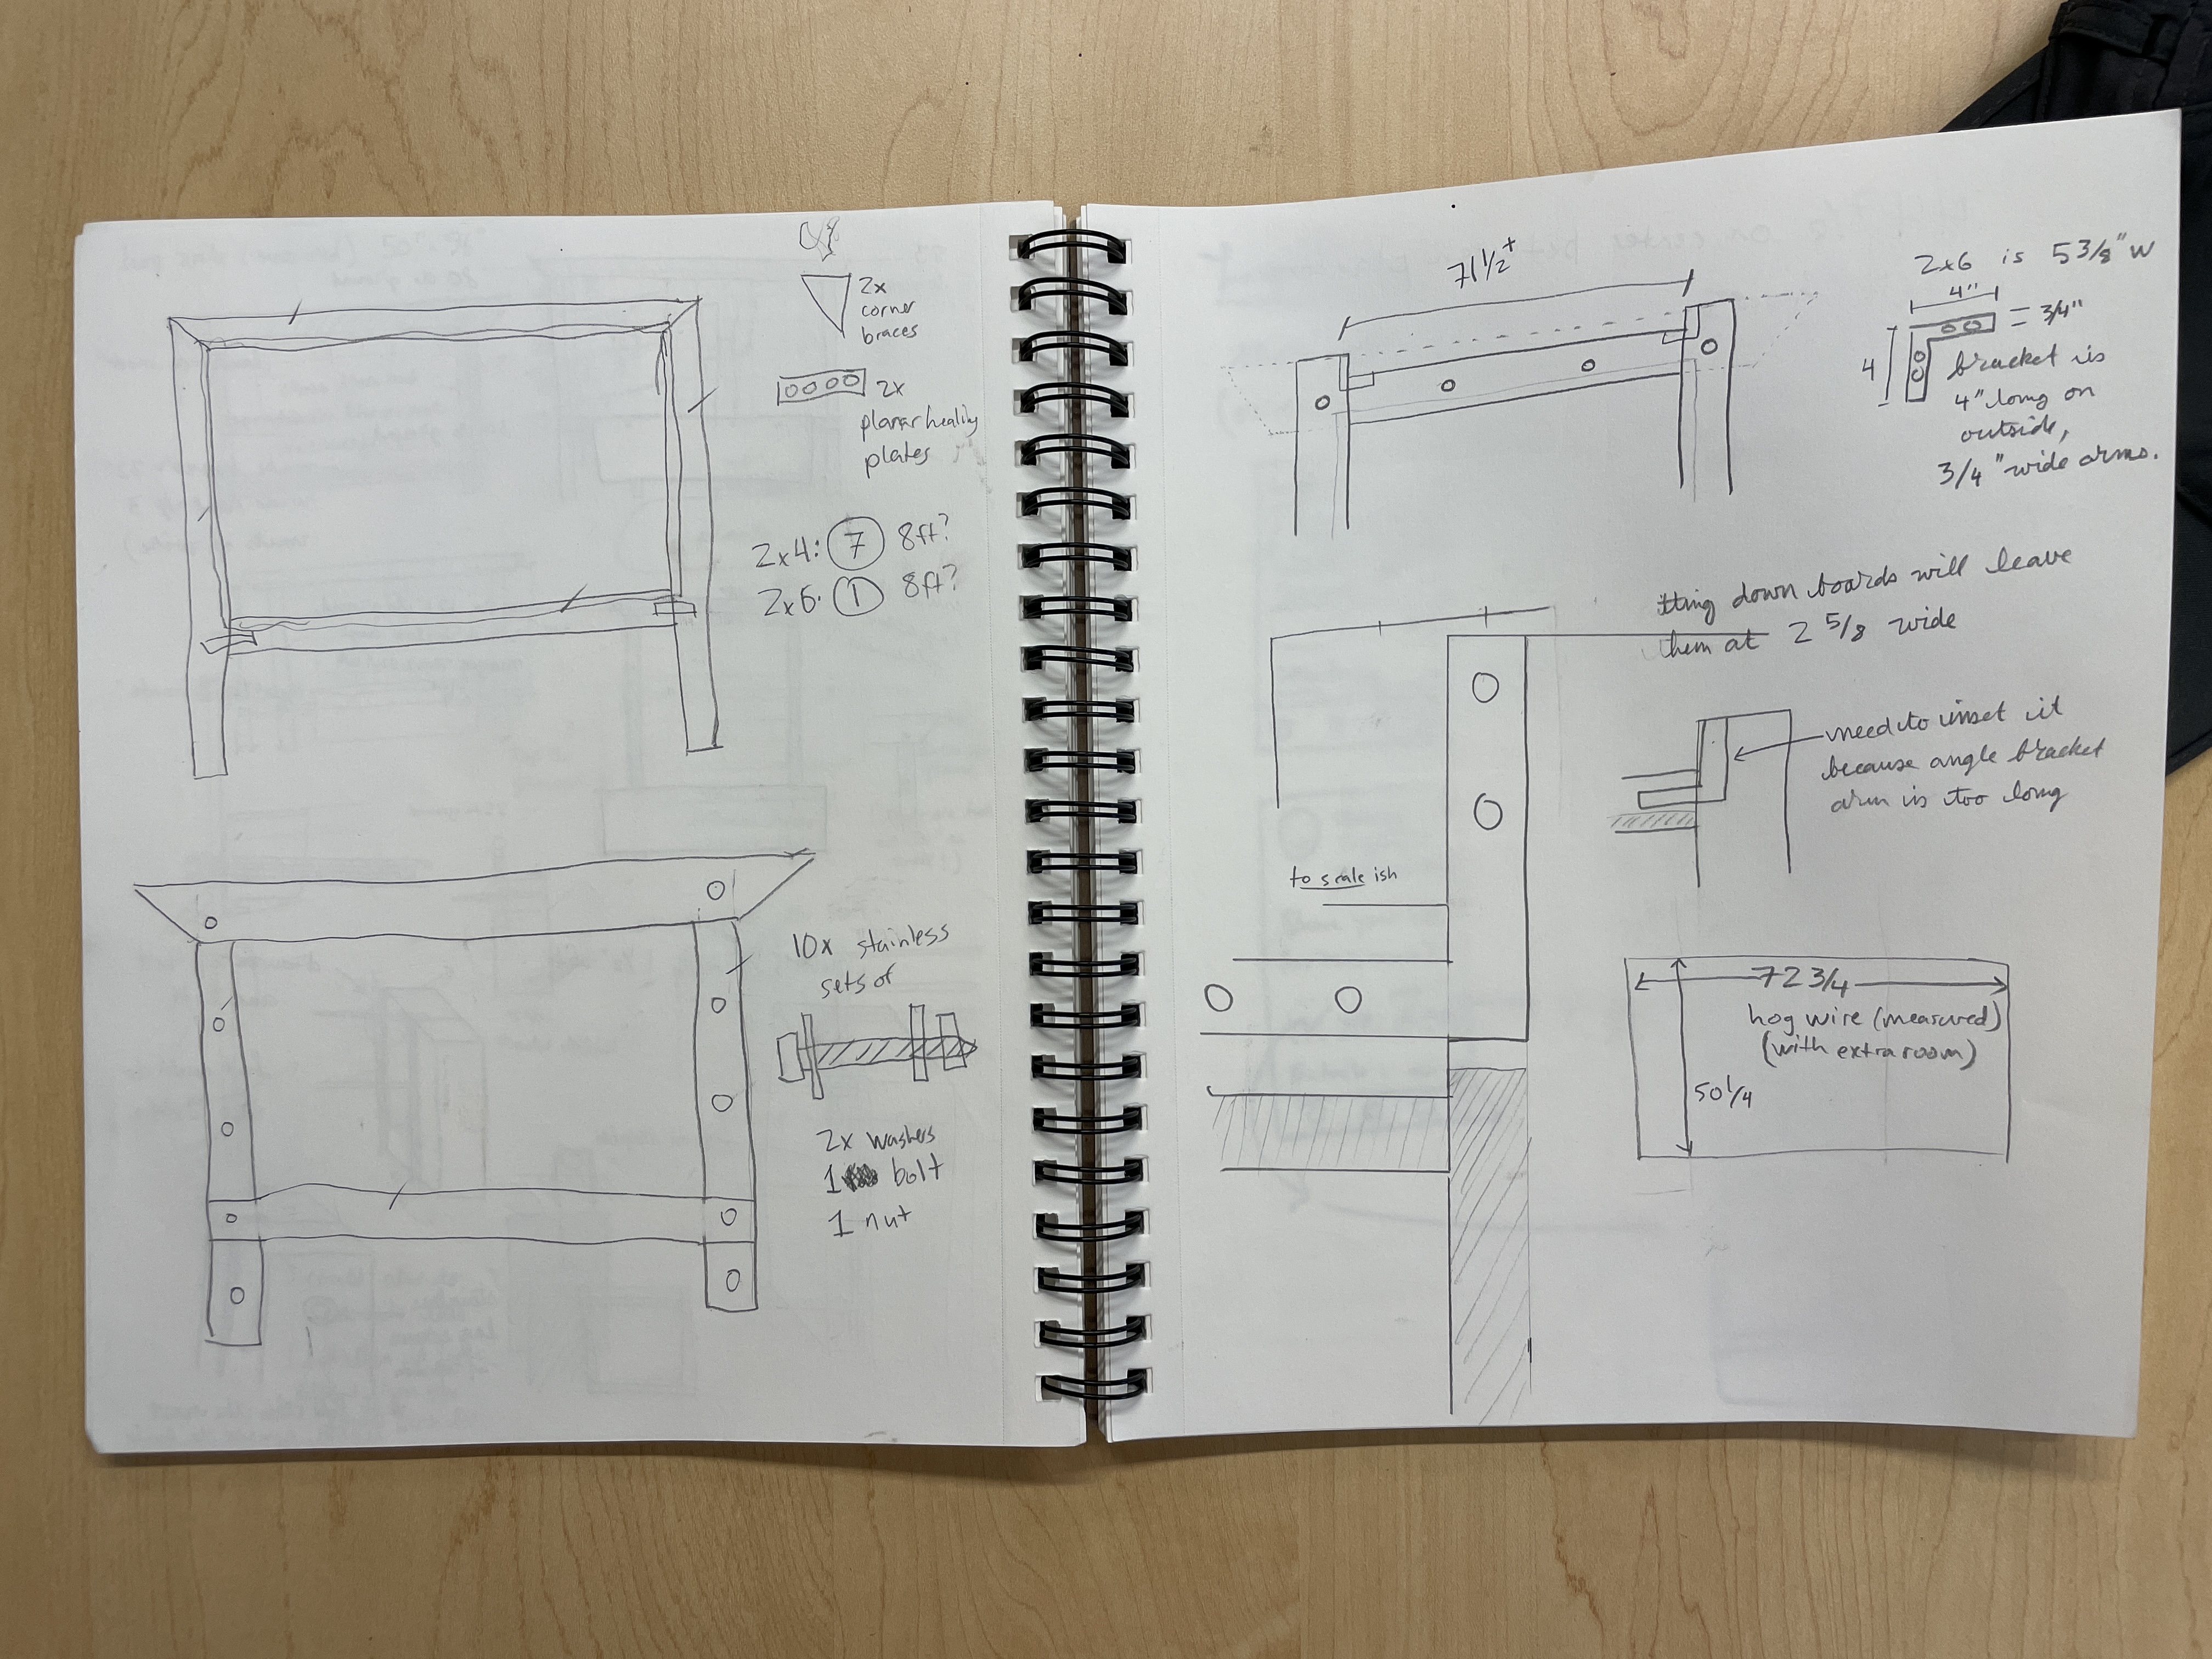 2x
corner
braces
2x
planar healing
plates
2x4: 7 8ft?
2x6. 1 8ft?
10x stainless
sets of
2x washers
1 bolt
1 nut
71 1/2 +
2x6 is 5 3/8" W
4"
3/4"
4
bracket is
4" long on
outside,
3/4" wide arms.
down boards will leave
them at 2 5/8 wide
need to inset it
because angle bracket
arm is too long
to scale ish
72 3/4
hog wire (measured)
(with extra room)
50 1/4